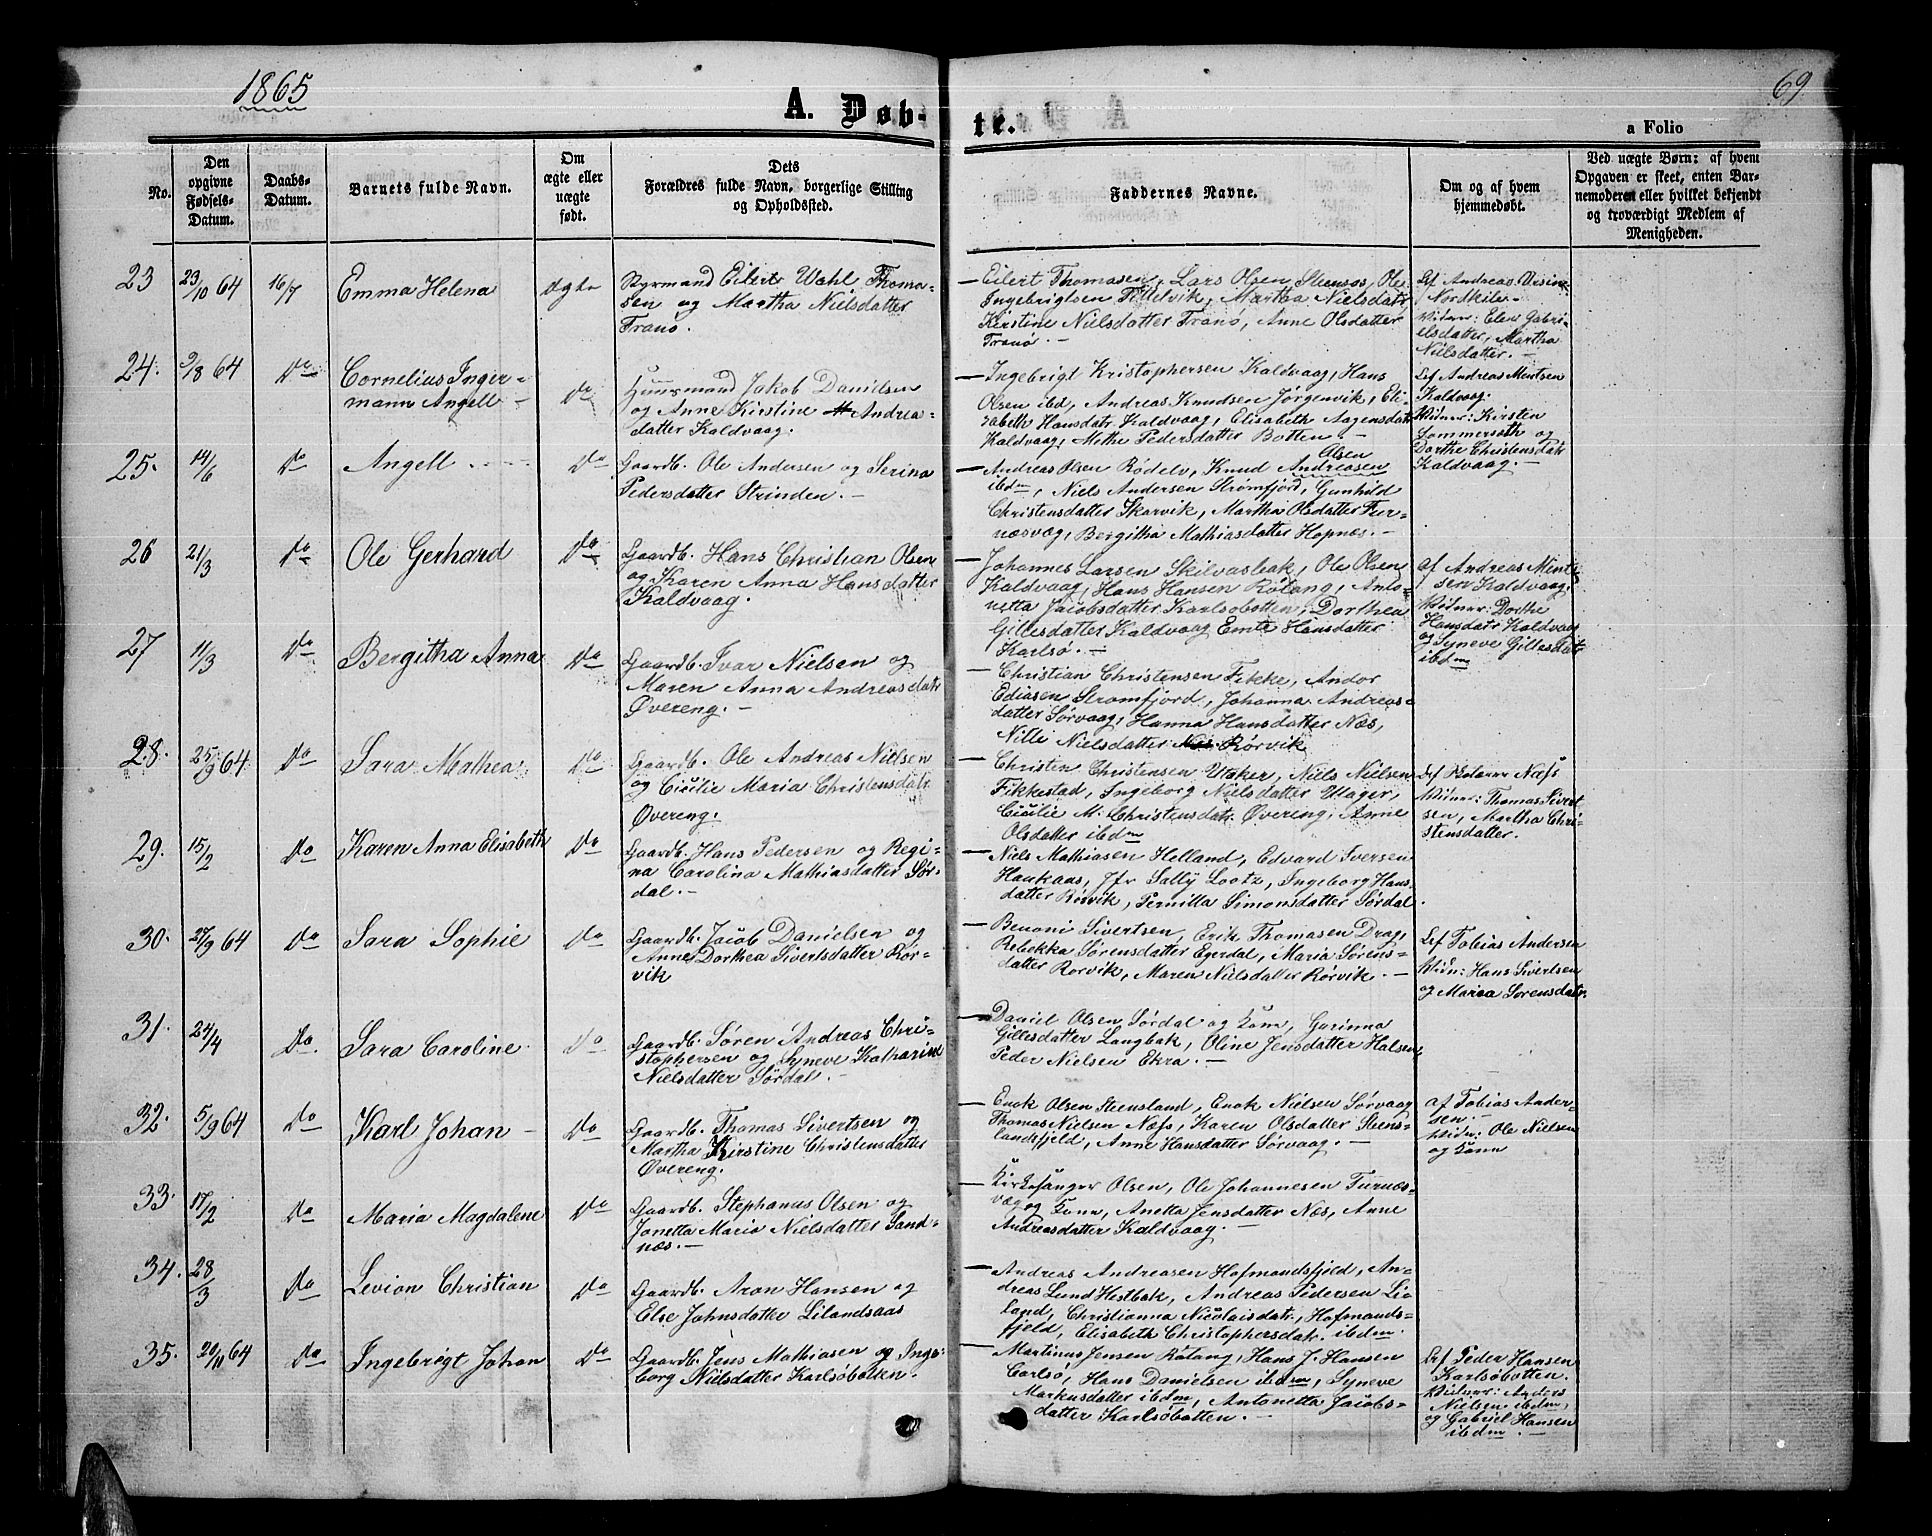 1865
A. Døb-
te.
69
a Folio
No.
Den
opgivne
Fødsels-
Datum.
Daabs-
Datum.
Barnets fulde Navn.
Om
ægte eller
uægte
født.
Dets
Forældres fulde Navn, borgerlige Stilling
og Opholdssted.
Faddernes Navne.
Om og af hvem
hjemmedøbt.
Ved uægte Børn: af hvem
Opgaven er skeet, enten Bar-
nemoderen eller hvilket bekjendt
og troværdigt Medlem af
Menigheden.
23 23/10 64 16/7 Emma Helena ægte
Eilert Wahl Thoma-
sen og Martha Nielsdatter
Tranø.
Eilert Thomasen, Lars Olsen Steensos, Ole
Ingebrigtsen, Martha Nielsdatr
Kirstine Nielsdatter Tranø, Anne Olsdatter
Tranø.
Andreas
Nordkile
Vidner: Elen Gabri-
elsdatter, Martha
Nielsdatter.
24. 9/8 64 Do Cornelius Inger-
mann Angell Do
Huusmand Jakob Danielsen
og Anne Kirstine Andreas-
datter Kaldvaag.
Ingebrigt Kristophersen Kaldvaag, Hans
Olsen ibd, Andreas Knudsen Jørgenvik, Eli-
sabeth Hansdatr. Kaldvaag, Elisabeth Aagensdatr
Kaldvaag, Methe Pedersdatter Botten.
Andreas Mentsen
Kaldvaag.
Vidner: Kirsten
Sommerseth og
Dorthe Christensdatr
Kaldvaag.
25. 14/6 Do Angell Do
Gaardb. Ole Andersen og Serina
Pedersdatter Strinden.
Olsen
Andreas Olsen Rødelv, Knud Andreasen
ibdm, Niels Andersen Strømfjord, Gunhild
Christensdatter Skarvik, Martha Olsdatter Fur-
næsvag, Bergitha Mathiasdatter Hopnæs.
26 21/3 Do Ole Gerhard Do
Gaardb. Hans Christian Olsen
og Karen Anna Hansdatter
Kaldvaag.
Johannes Larsen Skilvasbak, Ole Olsen
Kaldvaag, Hans Hansen Røtang, Anto-
netta Jacobsdatter Karlsøbotten, Dorthea
Gillesdatter Kaldvaag Emte Hansdatter
Karlsø.
af Andreas Ment-
sen Kaldvaag.
Vidner: Dorthe
Hansdatr Kaldvaag
og Syneve Gillesdatr
ibdm
27 11/3 Do Bergitha Anna Do
Gaardb. Ivar Nielsen og
Maren Anna Andreasdatr
Øvereng.
Christian Christensen Fikke, Andor
Ediasen Strømfjord, Johanna Andreas-
datter Sørvaag, Hanna Hansdatter Næs,
Nilli Nielsdatter Rørvik
28. 25/9 64 Do Sara Mathea Do
Gaardb. Ole Andreas Nielsen
og Cicilie Maria Christensdatr.
Øvereng.
Christen Christensen Utaker, Niels Nielsen
Fikkestad, Ingeborg Nielsdatter Utager,
Cicilie M. Christensdatr. Øvereng, Anne
Olsdatter ibdm
Næss
Vidner: Thomas Sivert-
sen, Martha Chri-
stensdatter.
29. 15/2 Do Karen Anna Elisabeth Do
Gaardb. Hans Pedersen og Regi-
na Carolina Mathiasdatter Sør-
dal.
Niels Mathiasen Helland, Edvard Iversen
Haukaas, Jfr Sally Lootz, Ingeborg Hans-
datter Rørvik, Pernilla Simonsdatter Sørdal.
30. 27/9 64 Do Sara Sophie Do
Gaardb. Jacob Danielsen og
Anne Dorthea Sivertsdatter Rør-
vik
Benoni Sivertsen, Erik Thomasen Drag,
Rebekka Sørensdatter Egerdal, Maria Sørens-
datter Rørvik, Maren Nielsdatter Rørvik.
Tobias Andersen
Vidn: Hans Sivertsen
og Maria Sørensdatr.
31. 24/4 Do. Sara Caroline Do
Gaardb. Søren Andreas Chri-
stophersen og Syneve Katharina
Nielsdatter Sørdal.
Daniel Olsen Sørdal og Kone, Gurinna
Gillesdatter Langbak, Oline Jensdatter Halsen,
Peder Nielsen Ekra.
32. 5/9 64 Do Karl Johan Do
Gaardb. Thomas Sivertsen og
Martha Kirstine Christensdatter
Øvereng.
Enok Olsen Steensland, Enok Nielsen Sørvaag
Thomas Nielsen Næss, Karen Olsdatter Steens-
landsfjeld, Anne Hansdatter Sørvaag.
af Tobias Ander-
sen
Vidn: Ole Nielsen
og Kone
33. 17/2 Do Maria Magdalene Do
Gaardb. Stephanus Olsen og
Jonetta Maria Nielsdatter Sand-
næs.
Kirkesanger Olsen, Ole Johannesen Furnæs-
væg og Kone, Anetta Jensdatter Næs, Anne
Andreasdatter Kaldvaag.
34. 28/3 Do Levion Christian Do
Gaardb. Aron Hansen og
Else Johnsdatter Lilandsaas
Andreas Andreasen Hofmandsfjeld, An-
dreas Lund Hestbak, Andreas Pedersen Li-
land, Christianna Nicolaisdatr. Hofmands-
fjeld, Elisabeth Christophersdatr. ibdm.
35. 20/11 64 Do Ingebrigt Johan Do
Gaardb. Jens Mathiasen og Inge-
borg Nielsdatter Karlsøbotten.
Martinus Jensen Røtang, Hans J. Hansen
Carlsø, Hans Danielsen ibdm, Syneve
Markusdatter ibdm, Antonetta Jacobs-
datter Karlsøbotten.
Peder Hansen
Karlsøbotten.
Vidner: Anders
Nielsen ibdm,
og Gabriel Hansen
ibdm.